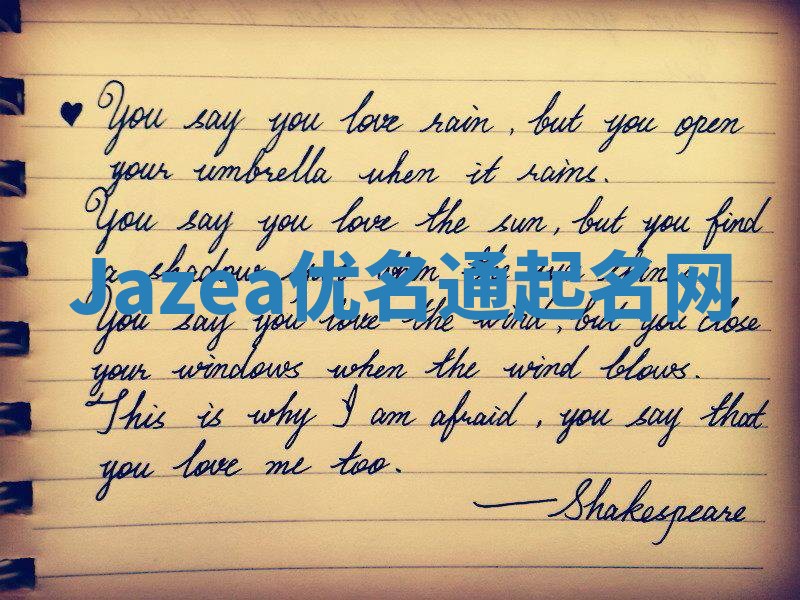 You say you love rain, but you open
your umbrella when it rains.
You say you love the sun, but you find
a shadow when the sun shines.
Jazea优名通起名网
You say you love the wind, but you close
your windows when the wind blows.
This is why I am afraid, you say that
you love me too.
— Shakespeare